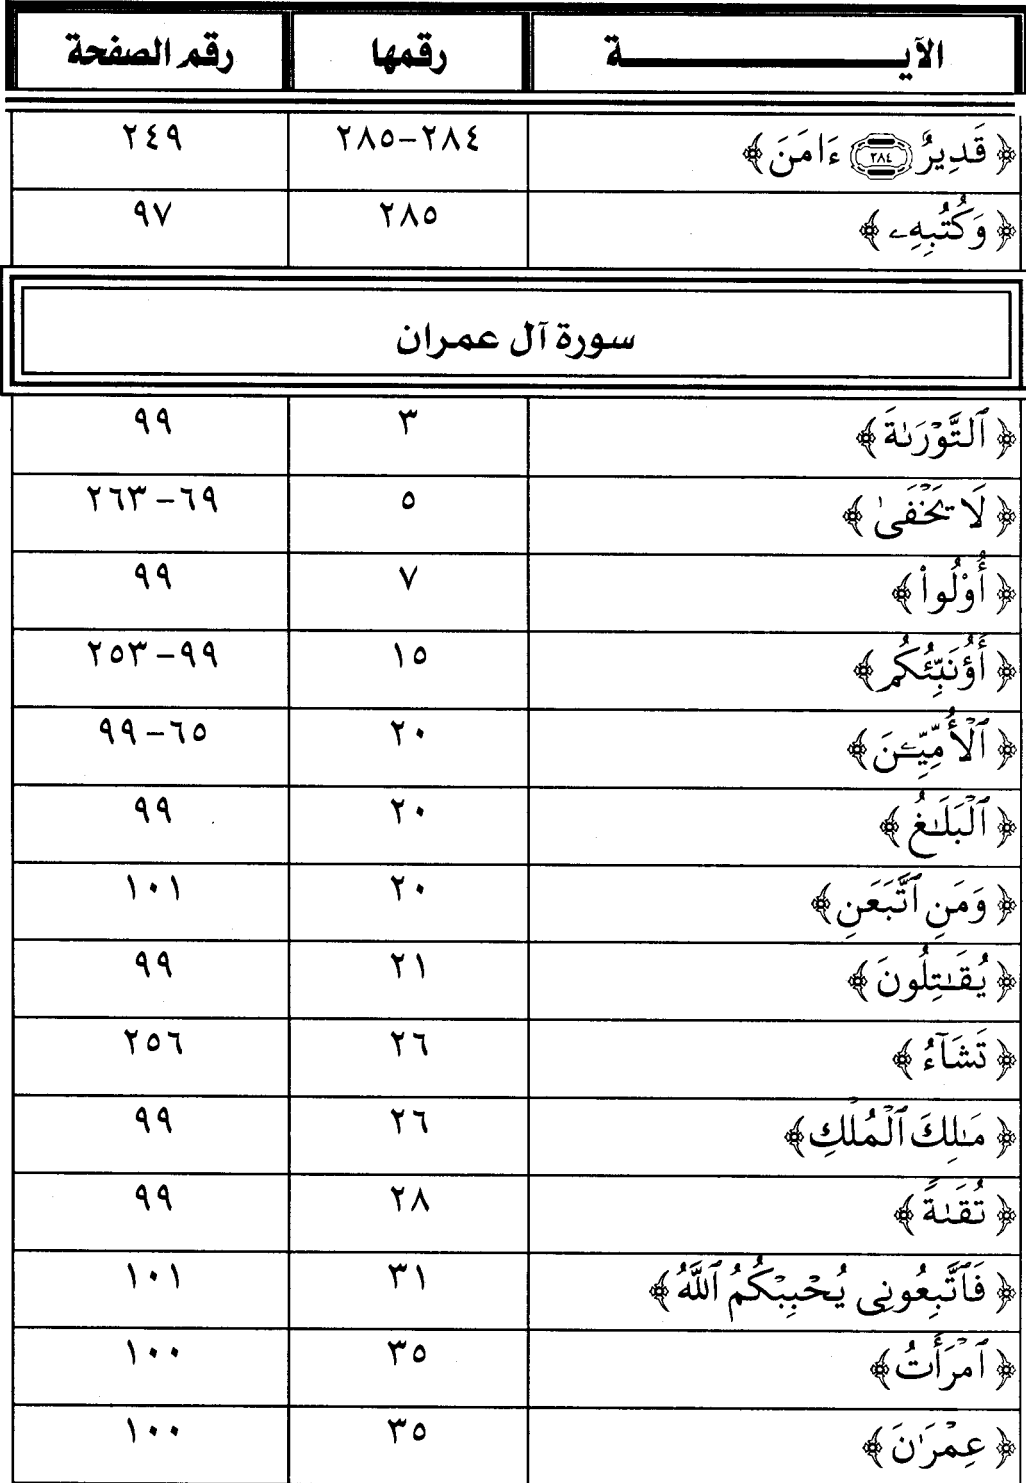 الآيـــــــــــة رقمها رقم الصفحة
﴿ قَدِيرٌ ٢٨٤ ءَامَنَ ﴾ ٢٨٤-٢٨٥ ٢٤٩
﴿ وَكُتُبِهِۦ ﴾ ٢٨٥ ٩٧
سورة آل عمران
﴿ ٱلتَّوْرَىٰةَ ﴾ ٣ ٩٩
﴿ لَا يَخْفَىٰ ﴾ ٥ ٦٩-٢٦٣
﴿ أُوْلُوا۟ ﴾ ٧ ٩٩
﴿ أَؤُنَبِّئُكُم ﴾ ١٥ ٩٩-٢٥٣
﴿ ٱلْأُمِّيِّـۧنَ ﴾ ٢٠ ٦٥-٩٩
﴿ ٱلْبَلَـٰغُ ﴾ ٢٠ ٩٩
﴿ وَمَنِ ٱتَّبَعَنِ ﴾ ٢٠ ١٠١
﴿ يُقَـٰتِلُونَ ﴾ ٢١ ٩٩
﴿ تَشَآءُ ﴾ ٢٦ ٢٥٦
﴿ مَـٰلِكَ ٱلْمُلْكِ ﴾ ٢٦ ٩٩
﴿ تُقَىٰةً ﴾ ٢٨ ٩٩
﴿ فَٱتَّبِعُونِى يُحْبِبْكُمُ ٱللَّهُ ﴾ ٣١ ١٠١
﴿ ٱمْرَأَتُ ﴾ ٣٥ ١٠٠
﴿ عِمْرَٰنَ ﴾ ٣٥ ١٠٠